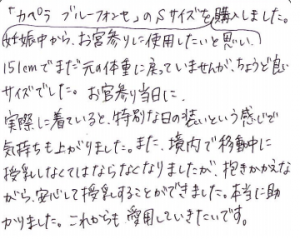 「カペラ ブルーフォンセ」のSサイズを購入しました。
妊娠中から、お宮参りに使用したいと思い、
151cmでまだ元の体重に戻っていませんが、ちょうど良い
サイズでした。お宮参り当日に、
実際に着ていると、特別な日の装いという感じで
気持ちも上がりました。また、境内で移動中に
授乳しなくてはならなくなりましたが、抱きかかえな
がら、安心して授乳することができました。本当に助
かりました。これからも愛用していきたいです。